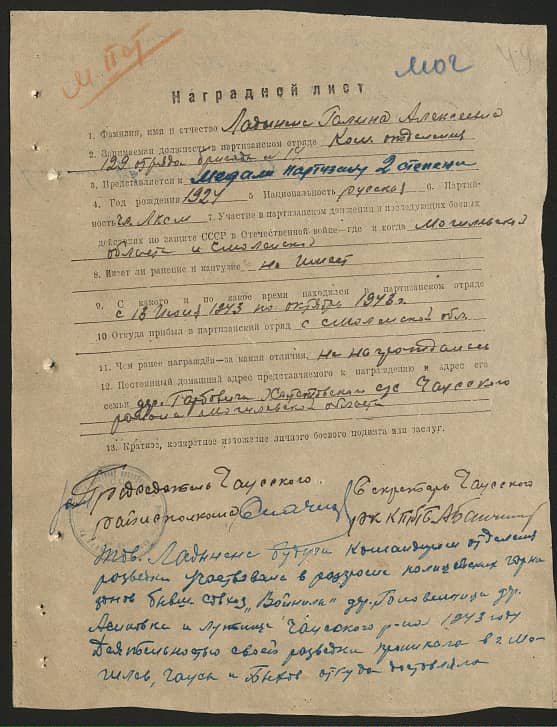 М ПОТ
мог
49
Наградной лист
1. Фамилия, имя и отчество Ладынене Галина Алексеевна
2. Занимаемая должность в партизанском отряде Ком. отделения
129 отряда бригада
3. Представляется к Медали Партизану 2 степени
4. Год рождения 1924 5 Национальность русская 6. Партий-
ность чл. ЛКСМ 7. Участие в партизанском движении и последующих боевых
действиях по защите СССР в Отечественной войне—где и когда Могилевская
область и Смоленской
8. Имеет ли ранение и контузию не имеет
9. С какого и по какое время находился в партизанском отряде
с 13 июня 1943 по октябрь 1943 г.
10 Откуда прибыл в партизанский отряд с Смоленской обл.
11. Чем ранее награждён—за какия отличия, не награждалась
12. Постоянный домашний адрес представляемого к награждению и адрес его
семьи дер. Горбовичи с/с Чаусского
района Могилевской области
13. Краткое, конкретное изложение личного боевого подвига или заслуг.
Председатель Чаусского
райисполкома
Секретарь Чаусского
рк КП/б/Б
Тов. Ладынене будучи Командиром отделения
разведки участвовала в разгроме полицейских гарни
зонов бывш совхоз „Войнилы" дер. Головенчицы дер.
Чаусского р-на 1943 году
Деятельностью своей разведки проникала в г. Мо-
гилев, Чаусы и Быхов откуда доставляла